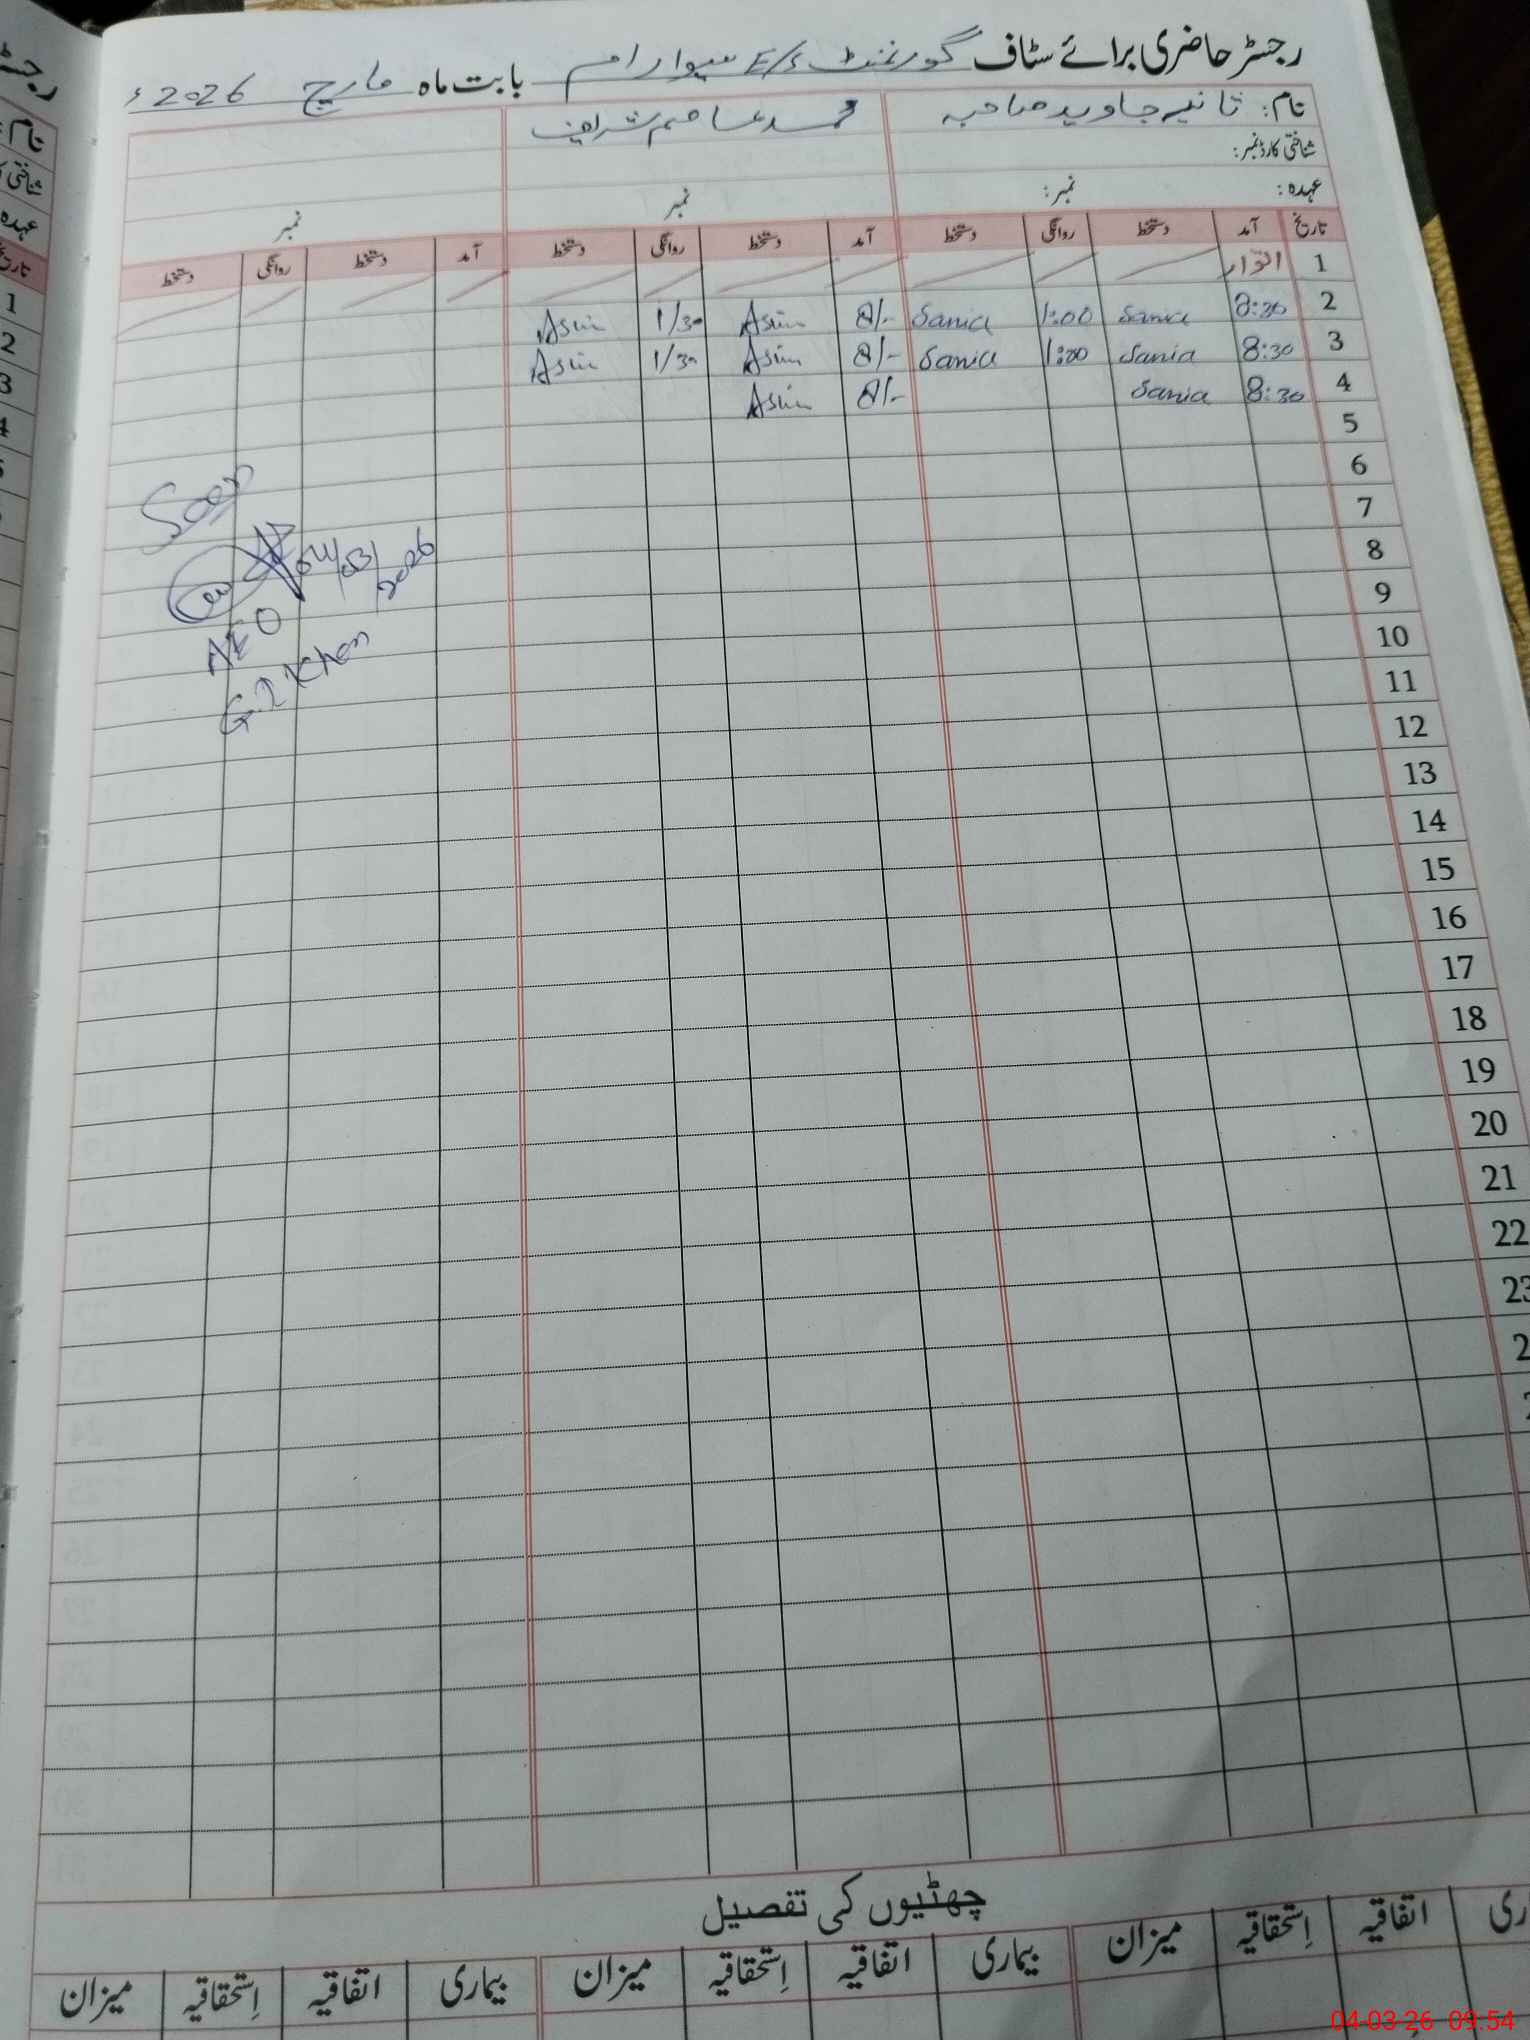 رجسٹر حاضری برائے سٹاف گورنمنٹ E/S سیوا رام بابت ماہ مارچ 2026ء
نام: ثانیہ جاوید صاحبہ محمد عاصم شریف
شناختی کارڈ نمبر:
عہدہ: نمبر: نمبر نمبر
تاریخ آمد دستخط روانگی دستخط آمد دستخط روانگی دستخط آمد دستخط روانگی دستخط
1 اتوار
2 8:30 Sania 1:00 Sania 8/- Asim 1/30 Asim
3 8:30 Sania 1:00 Sania 8/- Asim 1/30 Asim
4 8:30 Sania 8/- Asim
5
6
7
8
9
10
11
12
13
14
15
16
17
18
19
20
21
22
23
Seen
04/03/2026
AEO
G.I Khan
چھٹیوں کی تفصیل
اتفاقیہ اِستحقاقیہ میزان بیماری اتفاقیہ اِستحقاقیہ میزان بیماری اتفاقیہ اِستحقاقیہ میزان
04-03-26 09:54